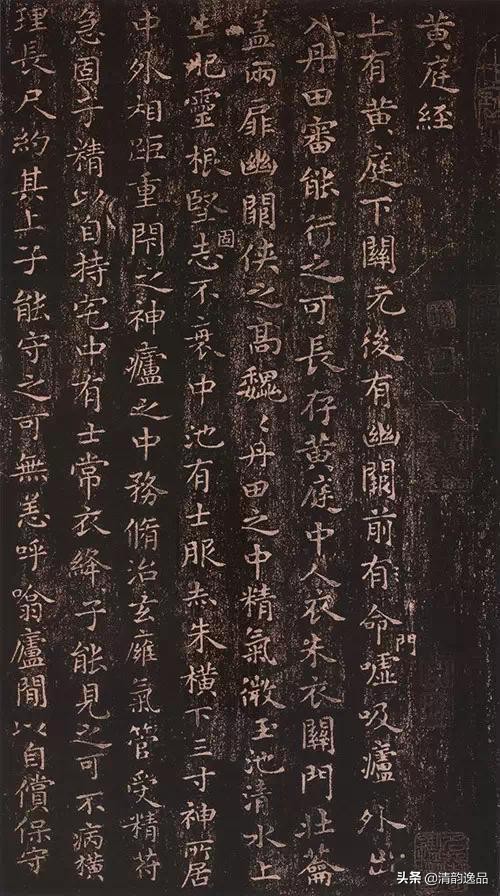 黃庭經
上有黃庭下關元後有幽闕前有命門噓吸廬外出
入丹田審能行之可長存黃庭中人衣朱衣關門壯籥
蓋兩扉幽闕俠之高巍〻丹田之中精氣微玉池清水上
生肥靈根堅固志不衰中池有士服赤朱橫下三寸神所居
中外相距重閇之神廬之中務脩治玄癰氣管受精符
急固子精以自持宅中有士常衣絳子能見之可不病橫
理長尺約其上子能守之可無恙呼噏廬間以自償保守
头条@清韵逸品